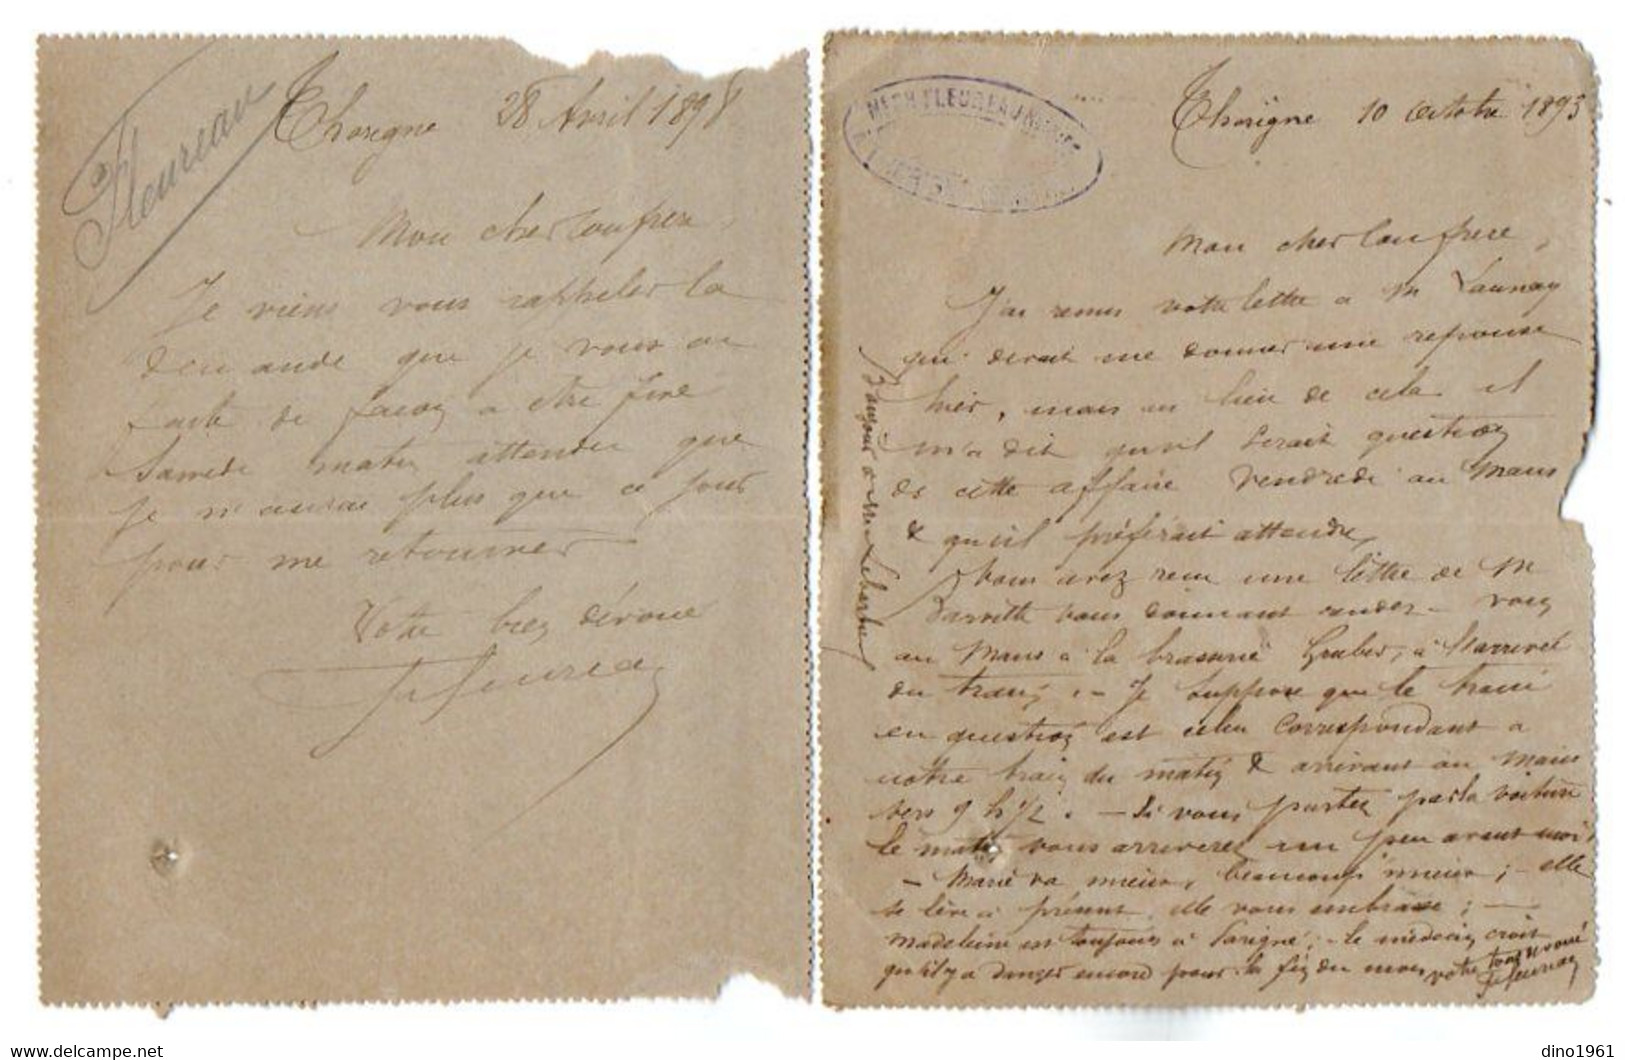 Fleureau
Thorigné 28 Avril 1898
Mon cher Confrère,
Je viens vous rappeler la
demande que je vous ai
faite de façon a être fixé
Samedi matin attendu que
je n'aurai plus que ce jour
pour me retourner
Votre bien dévoué
Fleureau
Thorigné 10 Octobre 1893
Mon cher Confrère,
J'ai remis votre lettre a M Launay
qui devait me donner une reponse
hier, mais au lieu de cela il
m'a dit qu'il serait question
de cette affaire Vendredi au Mans
& qu'il préférait attendre,
Vous avez reçu une lettre de M
vous donnant rendez-vous
au Mans à la brasserie Gruber, à l'arrivée
du train. — Je suppose que le train
en question est celui correspondant a
notre train du matin & arrivant au Mans
vers 9 h 1/2. — Si vous partez par la voiture
le matin vous arriverez un peu avant moi.
— Marie va mieux, beaucoup mieux; — elle
se lève à présent, elle vous embrasse; —
Madeleine est toujours à Savigné; — le médecin croit
qu'il y a danger encore pour la fin du mois
votre tout dévoué
Fleureau
Bonjour à Me